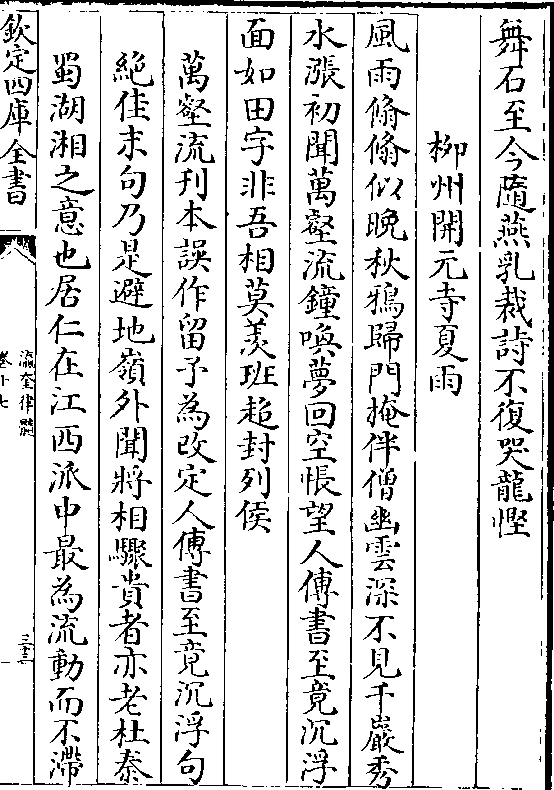 舞石至今隨燕乳裁詩不復哭龍慳
柳州開元寺夏雨
風雨翛翛似晚秋鴉歸門掩伴僧幽雲深不見千巖秀
水漲初聞萬壑流鐘喚夢回空悵望人傳書至竟沉浮
面如田字非吾相莫羡班超封列侯
萬壑流刊本誤作留予為改定人傳書至竟沉浮句
絶佳末句乃是避地嶺外聞將相驟貴者亦老杜秦
蜀湖湘之意也居仁在江西派中最為流動而不滯
欽定四庫全書
瀛奎律髓
卷十七
三十三